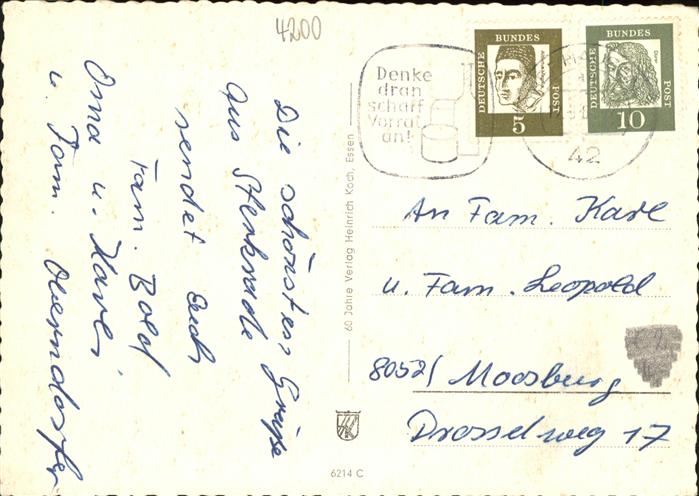 4200
Die schönsten Grüße
aus Sterkrade
sendet Euch
Fam. Bold
Oma u. Karli
u. Fam. Oberndorfer
60 Jahre Verlag Heinrich Koch, Essen
6214 C
Denke
dran
schaff
Vorrat
an!
DEUTSCHE BUNDES POST
5
DEUTSCHE BUNDES POST
Dürer
10
42
An Fam. Karl
u. Fam. Leopold
8052/ Moosburg
Drosselweg 17